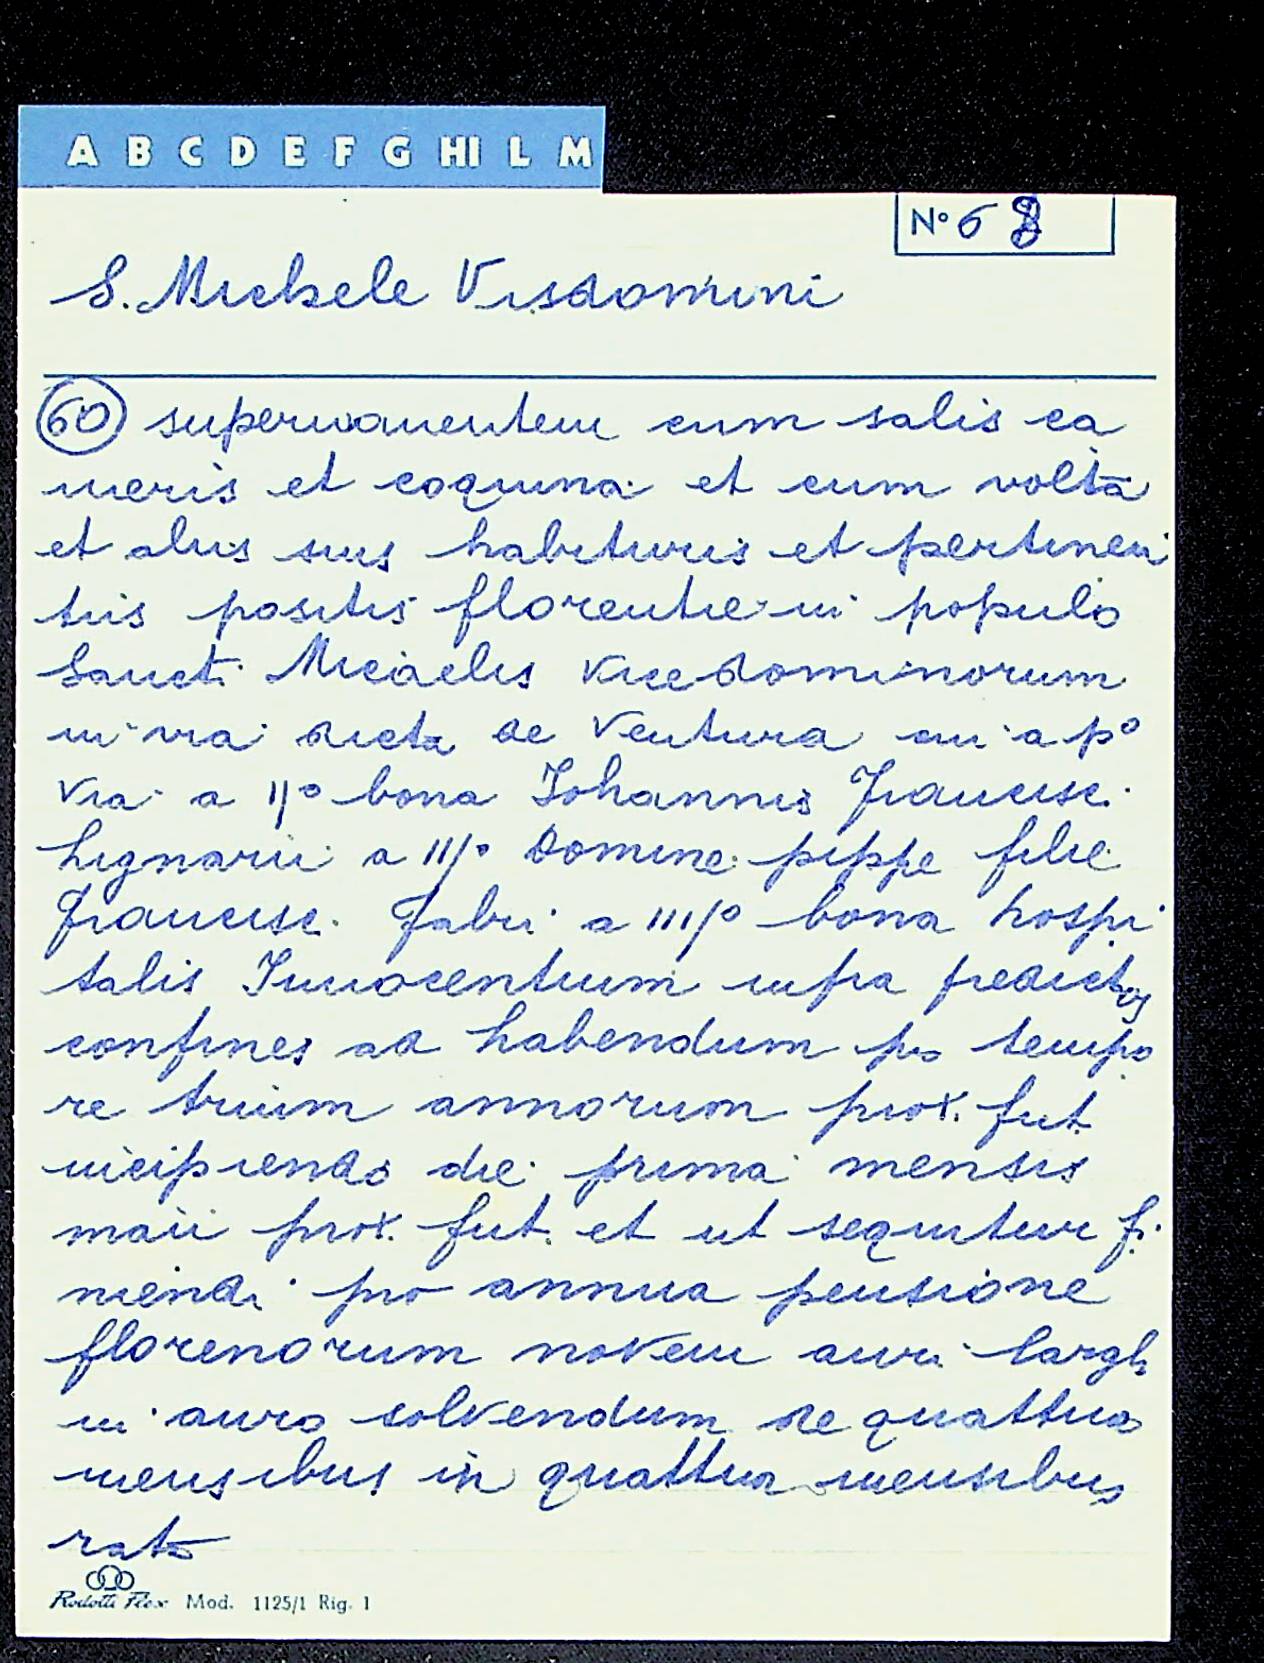 A B C D E F G HI L M
N° 68
S. Michele Visdomini
60 supereminentem cum salis ca
meris et coquina et cum volta
et aliis suis habituris et pertinen
tiis positis florentie in populo
Sancti Micaelis Vicedominorum
in via dicta de Ventura cui a p°
via a II° bona Johannis Francisc.
Lignarii a III° domine pippe filie
Francisc. Fabri a IIII° bona hospi
talis Innocentium infra predictos
confines ad habendum pro tempo
re trium annorum prox. fut.
incipiendo die prima mensis
maii prox. fut. et ut sequitur fi
niendi pro annua pensione
florenorum novem auri largh
in auro solvendum de quattuo
mensibus in quattuor mensibus
rata
Rodotti Flex Mod. 1125/1 Rig. 1